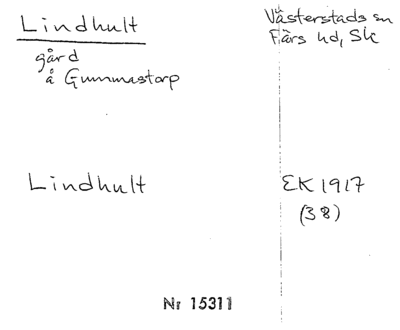 Lindhult
gård
å Gummastorp
Västerstads sn
Färs hd, Sk
Lindhult
EK 1917
(38)
Nr 15311